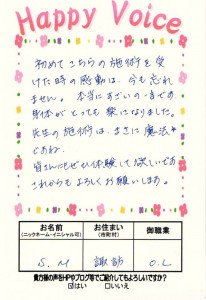 Happy Voice
初めてこちらの施術を受
けた時の感動は、今も忘れ
ません。本当にすごいの一言です。
身体がとっても楽になりました。
先生の施術は、まさに魔法
ですね。
皆さんにもぜひ体験して頂いて
これからもよろしくお願いします。
お名前
(ニックネーム・イニシャル可)
お住まい
(市町村)
御職業
S.M
諏訪
O.L
貴方様の声をHPやブログ等でご紹介してもよろしいですか?
☑はい □いいえ